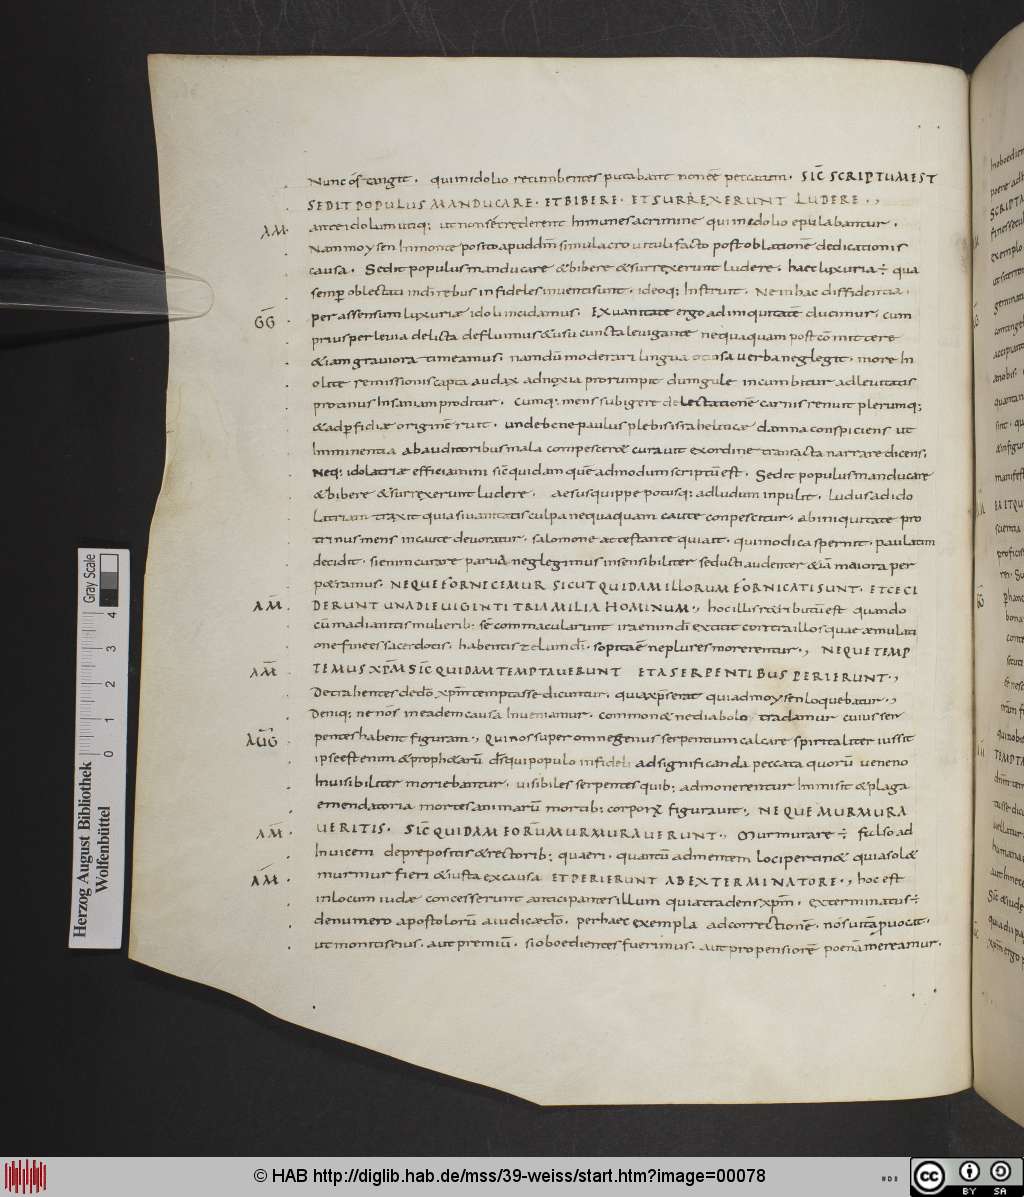 Nunc os tangit. qui in idolio recumbentes putabant non eē peccatum. SIC̄ SCRIPTUM EST
SEDIT POPULUS MANDUCARE. ET BIBERE. ET SURREXERUNT LUDERE.,
AM. ante idolum utiq; ut non se crederent Inmunes a crimine qui in idolio epulabantur.
Nam moysen In monte posito apud dm̄ simulacro uituli facto post oblationē dedicationis
causa. Sedit populus manducare & bibere & surrexerunt ludere. haec luxuria ÷ qua
semp̄ oblectati Indi rebus infideles inuenti sunt. ideoq; Instruit. Ne in hac diffidentia.
GG per assensum luxuriæ idoli incidamus. Ex uanitate ergo ad iniquitatē ducimur. cum
prius per leuia delicta defluimus & usu cuncta leuigante nequaquam post cōmittere
& iam grauiora timeamus. nam dū moderari lingua otiosa uerba neglegit. more In
olite remissionis capta audax ad noxia prorumpit dum gule incumbitur ad leuitatis
protinus Insaniam proditur. Cumq; mens subigere delectationē carnis renuit plerumq;
& ad p̄fidiæ originē ruit. unde bene paulus plebis israheliticæ damna conspiciens ut
Imminentia ab auditoribus mala compescer& curauit ex ordine transacta narrare dicens.
Neq; idolatriæ efficiamini sic̄ quidam quē admodum scriptū est. Sedit populus manducare
& bibere & surrexerunt ludere. aesus quippe potusq; ad ludum inpulit. ludus ad ido
latriam traxit quia si uanitatis culpa nequaquam caute conpescitur. ab iniquitate pro
tinus mens incaute deuoratur. salomone attestante qui ait. qui modica spernit. paulatim
decidit. si enim curare parua neglegimus insensibiliter seducti audenter &iā maiora per
p&ramus. NEQUE FORNICEMUR SICUT QUIDAM ILLORUM FORNICATI SUNT. ET CECI
AM̄. DERUNT UNA DIE UIGINTI TRIA MILIA HOMINUM., hoc illis r&ributū est quando
cū madianitis mulierib; se commacularunt ira enim dī excitit contra illos quae æmulati
one finees sacerdotis. habentis zelum dī. sopita ē ne plures morerentur., NEQUE TEMP
AM̄. TEMUS XPM̄ SIC̄ QUIDAM TEMPTAUERUNT ET A SERPENTIBUS PERIERUNT.,
Detrahentes de dō xpm̄ temptasse dicuntur. quia xps̄ erat qui ad moysen loquebatur.,
Deniq; ne nōs in eadem causa Inueniamur. common& ne diabolo tradamur cuius ser
AUḠ pentes habent figuram., Qui nos super omne genus serpentium calcare spiritaliter iussit
ipse est enim & proph&arū ds̄ qui populo infideli ad significanda peccata quorū ueneno
Inuisibiliter moriebantur. uisibiles serpentes quib; admonerentur Inmisit & plaga
emendatoria mortes animarū mortib; corporꝝ figurauit., NEQUE MURMURA
AM̄. UERITIS. SIC̄ QUIDAM EORŪ MURMURAUERUNT., Murmurare ÷ falso ad
Inuicem de prepositis & rectorib; quaeri. quantū ad mentem loci pertin& quia sol&
AM̄. murmur fieri & iusta ex causa ET PERIERUNT AB EXTERMINATORE., hoc est
in locum iudæ concesserunt anticipantes illum quia tradens xpm̄. exterminatus ÷
de numero apostolorū a iudice dō. per haec exempla ad correctionē. nōs uitā p̄uocat.
ut montis eius. aut premiū. si oboedientes fuerimus. aut propensiorē poenā mereamur.
Herzog August Bibliothek
Wolfenbüttel
Gray Scale
0 1 2 3 4
© HAB http://diglib.hab.de/mss/39-weiss/start.htm?image=00078
cc BY SA